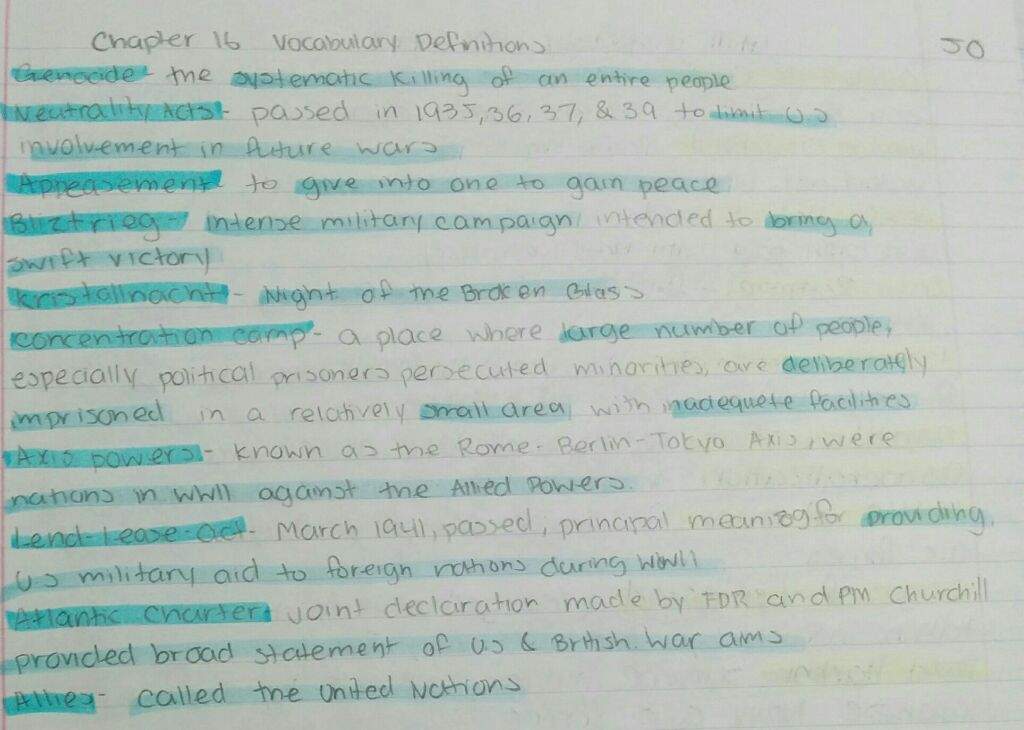 Chapter 16 Vocabulary Definitions 50
Genocide- the systematic killing of an entire people
Neutrality Acts- passed in 1935, 36, 37, & 39 to limit US
involvement in future wars
Appeasement to give into one to gain peace
Bliztrieg- intense military campaign intended to bring a
swift victory
Kristallnacht- Night of the Broken Glass
concentration camp- a place where large number of people,
especially political prisoners persecuted minorities, are deliberately
imprisoned in a relatively small area, with inadequete facilities
Axis powers- known as the Rome-Berlin-Tokyo Axis, were
nations in WWII against the Allied Powers.
Lend-Lease-Act- March 1941, passed, principal meaning for providing
US military aid to foreign nations during WWII
Atlantic Charter joint declaration made by FDR and PM Churchill
provided broad statement of US & British war aims
Allies- called the United Nations